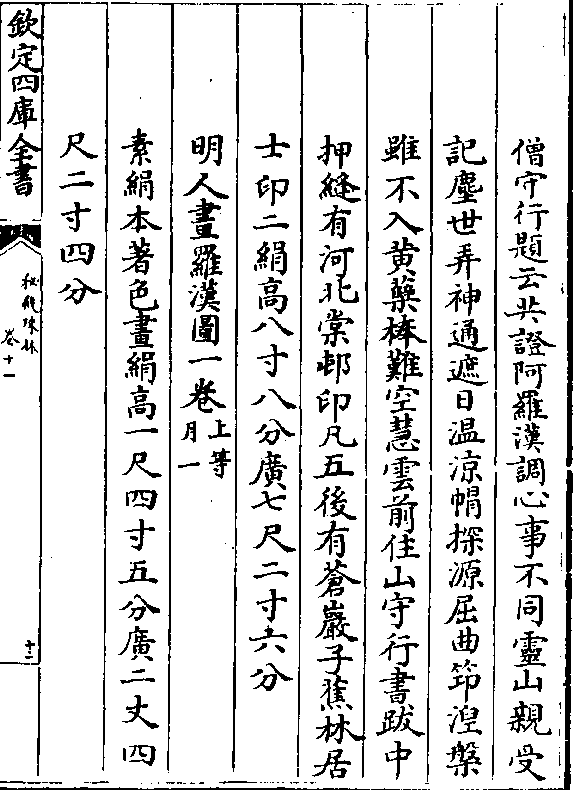 僧守行題云共證阿羅漢調心事不同靈山親受
記塵世弄神通遮日温涼帽探源屈曲笻涅槃
雖不入黄蘗棒難空慧雲前住山守行書跋中
押縫有河北棠邨印凡五後有蒼巖子蕉林居
士印二絹高八寸八分廣七尺二寸六分
明人畫羅漢圖一卷上等月一
素絹本著色畫絹高一尺四寸五分廣二丈四
尺二寸四分
欽定四庫全書
秘殿珠林
卷十一
十二